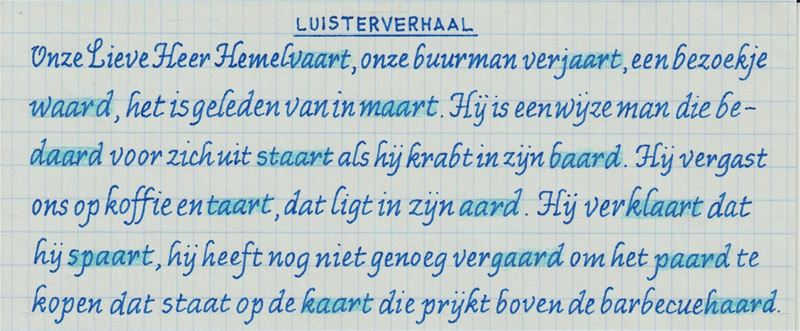 LUISTERVERHAAL
Onze Lieve Heer Hemelvaart, onze buurman verjaart, een bezoekje
waard, het is geleden van in maart. Hij is een wijze man die be-
daard voor zich uit staart als hij krabt in zijn baard. Hij vergast
ons op koffie en taart, dat ligt in zijn aard. Hij verklaart dat
hij spaart, hij heeft nog niet genoeg vergaard om het paard te
kopen dat staat op de kaart die prijkt boven de barbecuehaard.